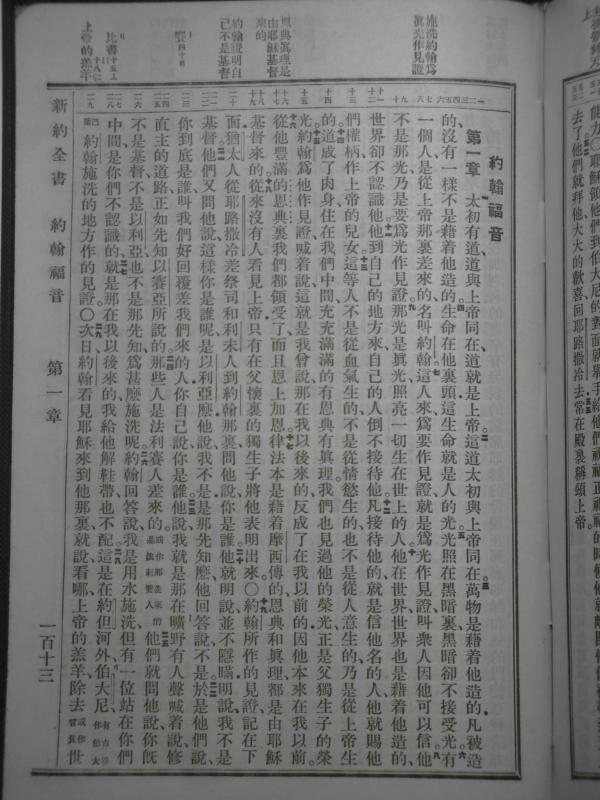 能力〇耶穌領他們到伯大尼的對面就舉手給他們祝福正祝福的時候他就離開他們被
去了他們就拜他大大的歡喜回耶路撒冷去常在殿裏稱頌上帝
施洗約翰爲眞光作見證
恩典眞理是由耶穌基督來的
約翰說明自己不是基督
上帝的羔羊
約翰福音
第一章 太初有道道與上帝同在道就是上帝這道太初與上帝同在萬物是藉着他造的凡被造
的沒有一樣不是藉着他造的生命在他裏頭這生命就是人的光光照在黑暗裏黑暗卻不接受光有
一個人是從上帝那裏差來的名叫約翰這人來爲要作見證就是爲光作見證叫衆人因他可以信他
不是那光乃是要爲光作見證那光是眞光照亮一切生在世上的人他在世界世界也是藉着他造的
世界卻不認識他他到自己的地方來自己的人倒不接待他凡接待他的就是信他名的人他就賜他
們權柄作上帝的兒女這等人不是從血氣生的不是從情慾生的也不是從人意生的乃是從上帝生
的道成了肉身住在我們中間充充滿滿的有恩典有眞理我們也見過他的榮光正是父獨生子的榮
光約翰爲他作見證喊着說這就是我曾說那在我以後來的反成了在我以前的因他本來在我以前
從他豐滿的恩典裏我們都領受了而且恩上加恩律法本是藉着摩西傳的恩典和眞理都是由耶穌
基督來的從來沒有人看見上帝只有在父懷裏的獨生子將他表明出來〇約翰所作的見證記在下
面猶太人從耶路撒冷差祭司和利未人到約翰那裏問他說你是誰他就明說並不隱瞞明說我不是
基督他們又問他說這樣你是誰呢是以利亞麽他說我不是是那先知麽他回答說不是於是他們說
你到底是誰叫我們好回覆差我們來的人你自己說你是誰他說我就是那在曠野有人聲喊着說修
直主的道路正如先知以賽亞所說的那些人是法利賽人差來的他們就問他說你旣
不是基督不是以利亞也不是那先知爲甚麽施洗呢約翰回答說我是用水施洗但有一位站在你們
中間是你們不認識的就是那在我以後來的我給他解鞋帶也不配這是在約但河外伯大尼
約翰施洗的地方作的見證〇次日約翰看見耶穌來到他那裏就說看哪上帝的羔羊除去世
新約全書 約翰福音 第一章 一百十三